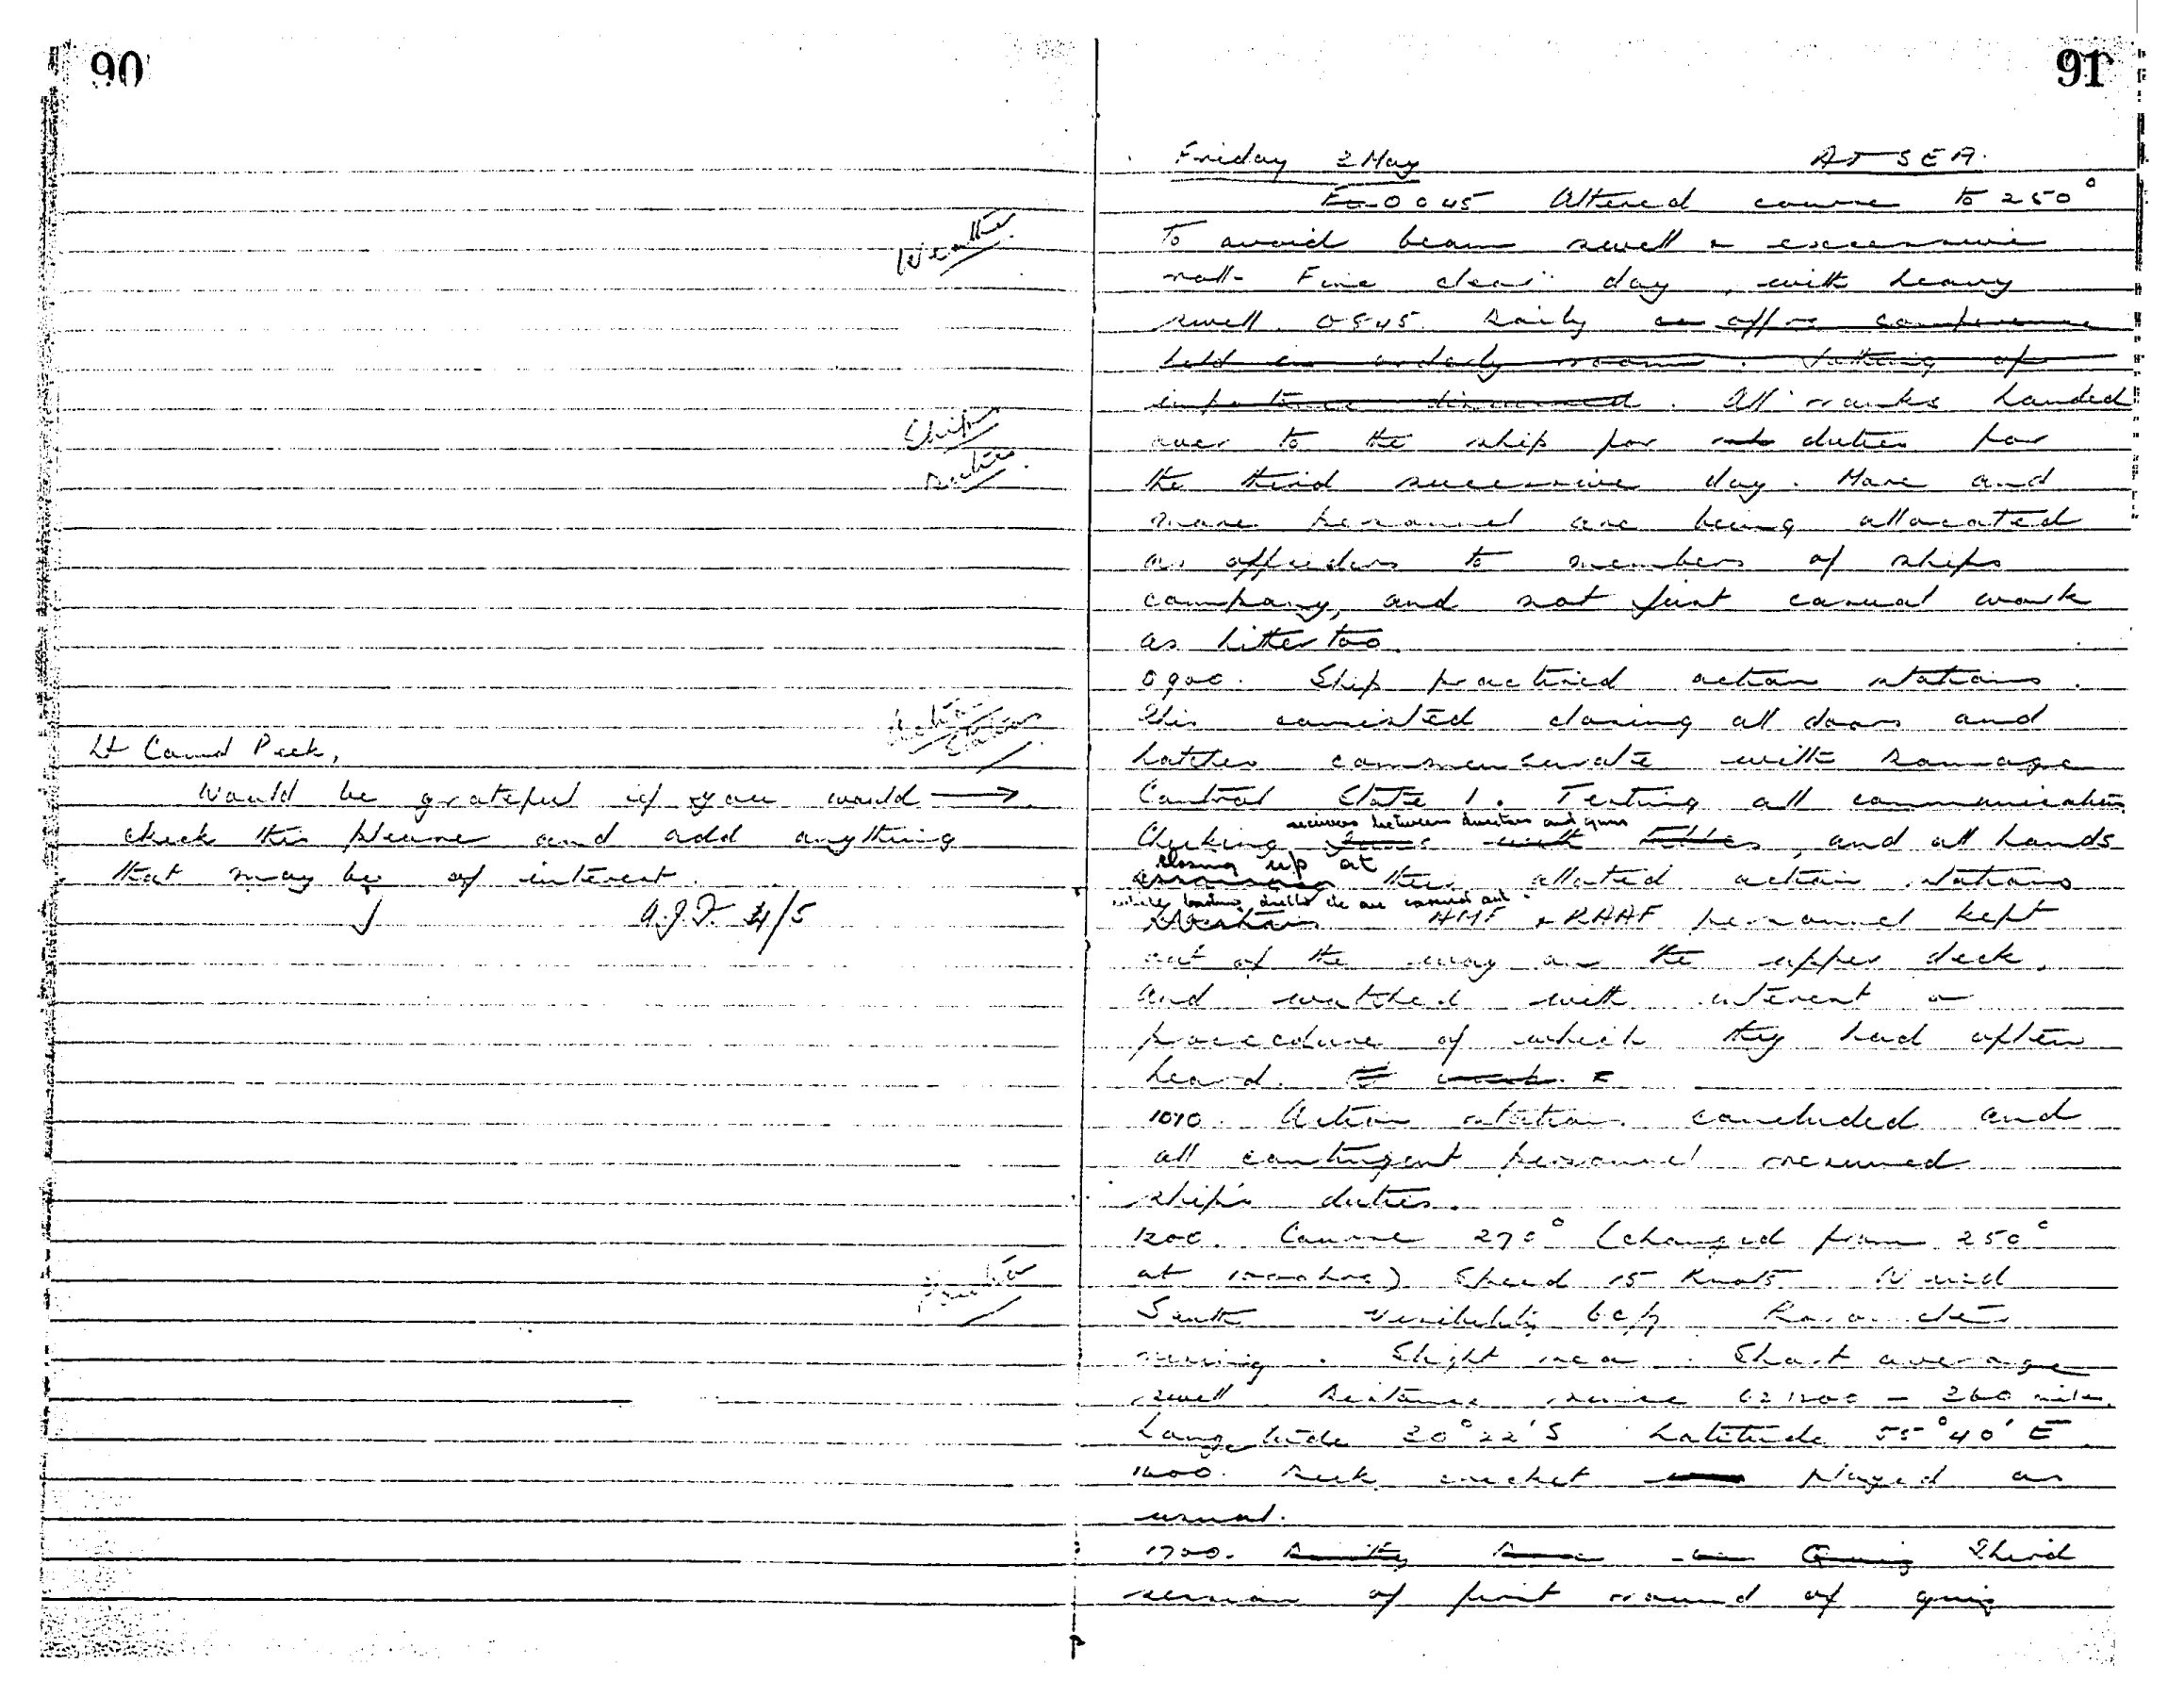 90
Weather.
Ship
Duties.
Action
Stations
Lt Comd Peek,
Would be grateful if you would →
check this please and add anything
that may be of interest.
A.J.F. 4/5
Position
91
Friday 2 May AT SEA.
0045 Altered course to 250°
to avoid beam swell & excessive
roll. Fine clear day, with heavy
swell. 0845. Daily offrs conference
held in orderly room. Nothing of
importance discussed. All ranks handed
over to the ship for duties for
the third successive day. More and
more personnel are being allocated
as offsiders to members of ships
company, and not just casual work
as hitter too.
0900. Ship practised action stations.
This consisted closing all doors and
hatches commensurate with Damage
Control State 1. Testing all communications
receivers between directors and guns
Checking with, and all hands
closing up at
their allotted action stations
while loading drills etc are carried out.
AMF & RAAF personnel kept
out of the way on the upper deck,
and watched with interest a
procedure of which they had often
heard.
1010. Action stations concluded and
all contingent personnel resumed
ship's duties.
1200. Course 270° (changed from 250°
at hrs) Speed 15 Knots Wind
South Visibility bc/
rising. Slight sea. Short average
swell Distance since 021200 - 260 miles.
Longitude 20°22'S Latitude 55°40'E
1600. Deck cricket played as
usual.
1700. Quiz Third
session of first round of quiz